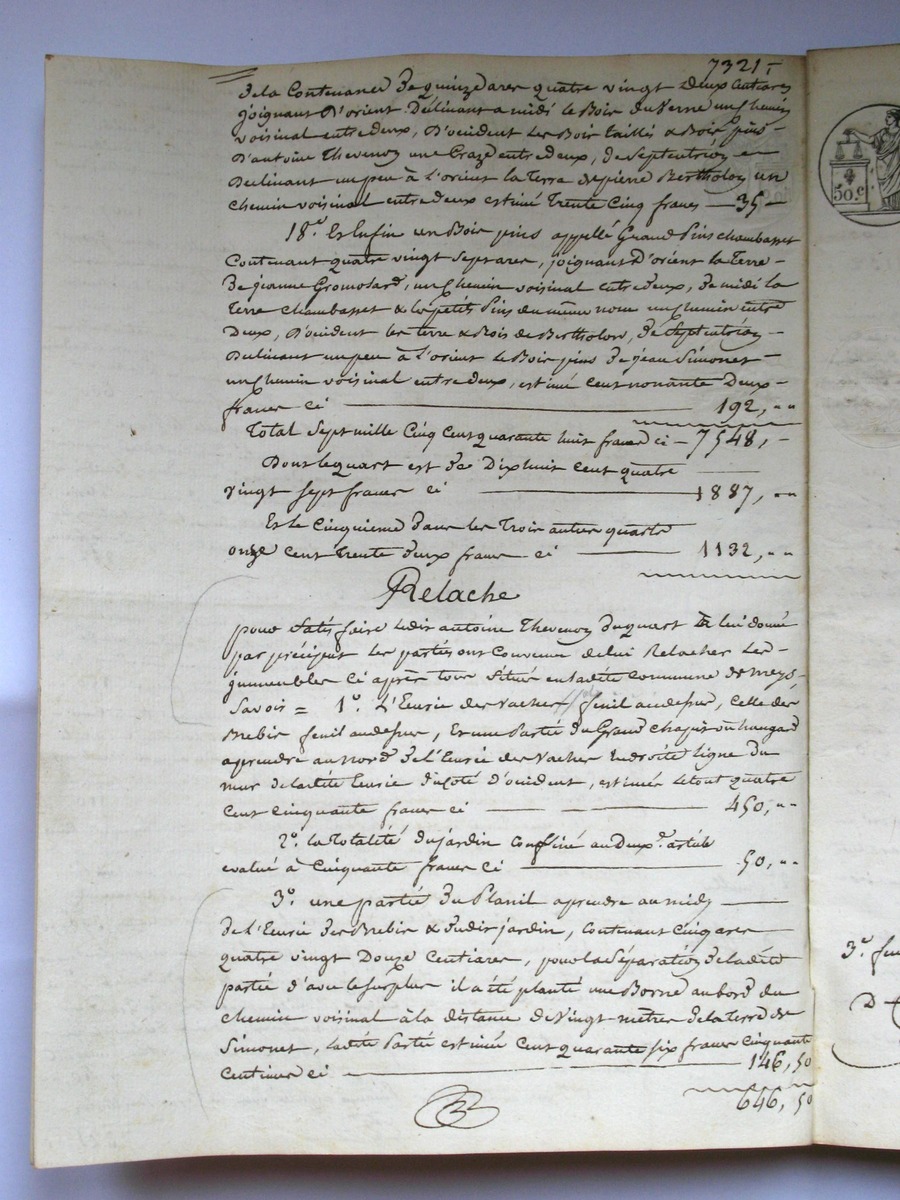 7321,-
de la Contenance de quinze ares quatre vingt deux Centiares
joignant d'orient Déclinant a midi le Bois du Verne un Chemin
voisinal entre deux, d'occident les Bois taillis & Bois pins
d'antoine Thevenon une Craze entre deux, de Septentrion en
Declinant un peu à l'orient la terre de pierre Bertholon un
chemin voisinal entre deux estimé trente Cinq francs — 35 -
18.° Et Enfin un Bois pins appellé Grand Pins chambasset
Contenant quatre vingt sept ares, joignant D'orient la Terre
de jeanne Gromolard, un Chemin voisinal entre deux, de midi la
Terre chambasset & les petits Pins du même nom un Chemin entre
Deux, D'occident les terre & Bois de Bertholon, de Septentrion
Declinant un peu à l'orient le Bois pins de jean Simonet
un Chemin voisinal entre deux, estimé cent nonante Deux
francs ci — 192, „ „
Total Sept mille Cinq Cent quarante huit francs ci — 7548, -
Dont le quart est de Dix huit Cent quatre
vingt sept francs ci — 1887, „ „
Et le Cinquieme dans les Trois autres quarts
onze cent trente deux francs ci — 1132, „ „
Relache
pour satisfaire ledit antoine Thevenon du quart à lui donné
par préciput les parties ont Convenu de lui Relacher les
jmmeubles Ci après tous situés en ladite Commune de meys,
Savoir = 1.° L'Ecurie des Vaches, fenil au dessus, Celle des
Brebis fenil au dessus, Et une Partie du Grand chapit ou hangard
a prendre au Nord de l'Ecurie des Vaches En droite ligne du
mur de ladite Ecurie du coté d'occident, estimés le tout quatre
Cent Cinquante francs ci — 450, „ „
2.° la Totalité du jardin Confiné au Deux.e article
evalué à Cinquante francs Ci — 50, „ „
3.° une partie du Planil a prendre au midy
de l'Ecurie des Brebis & dudit jardin, Contenant Cinq ares
quatre vingt Douze Centiares, pour la Séparation de ladite
partie d'avec le surplus il a été planté une Borne au bord du
chemin voisinal à la distance de Vingt mètres de la terre de
Simonet, ladite Partie estimée Cent quarante six francs Cinquante
Centimes ci — 146, 50
646, 50
50 c
3.e
D